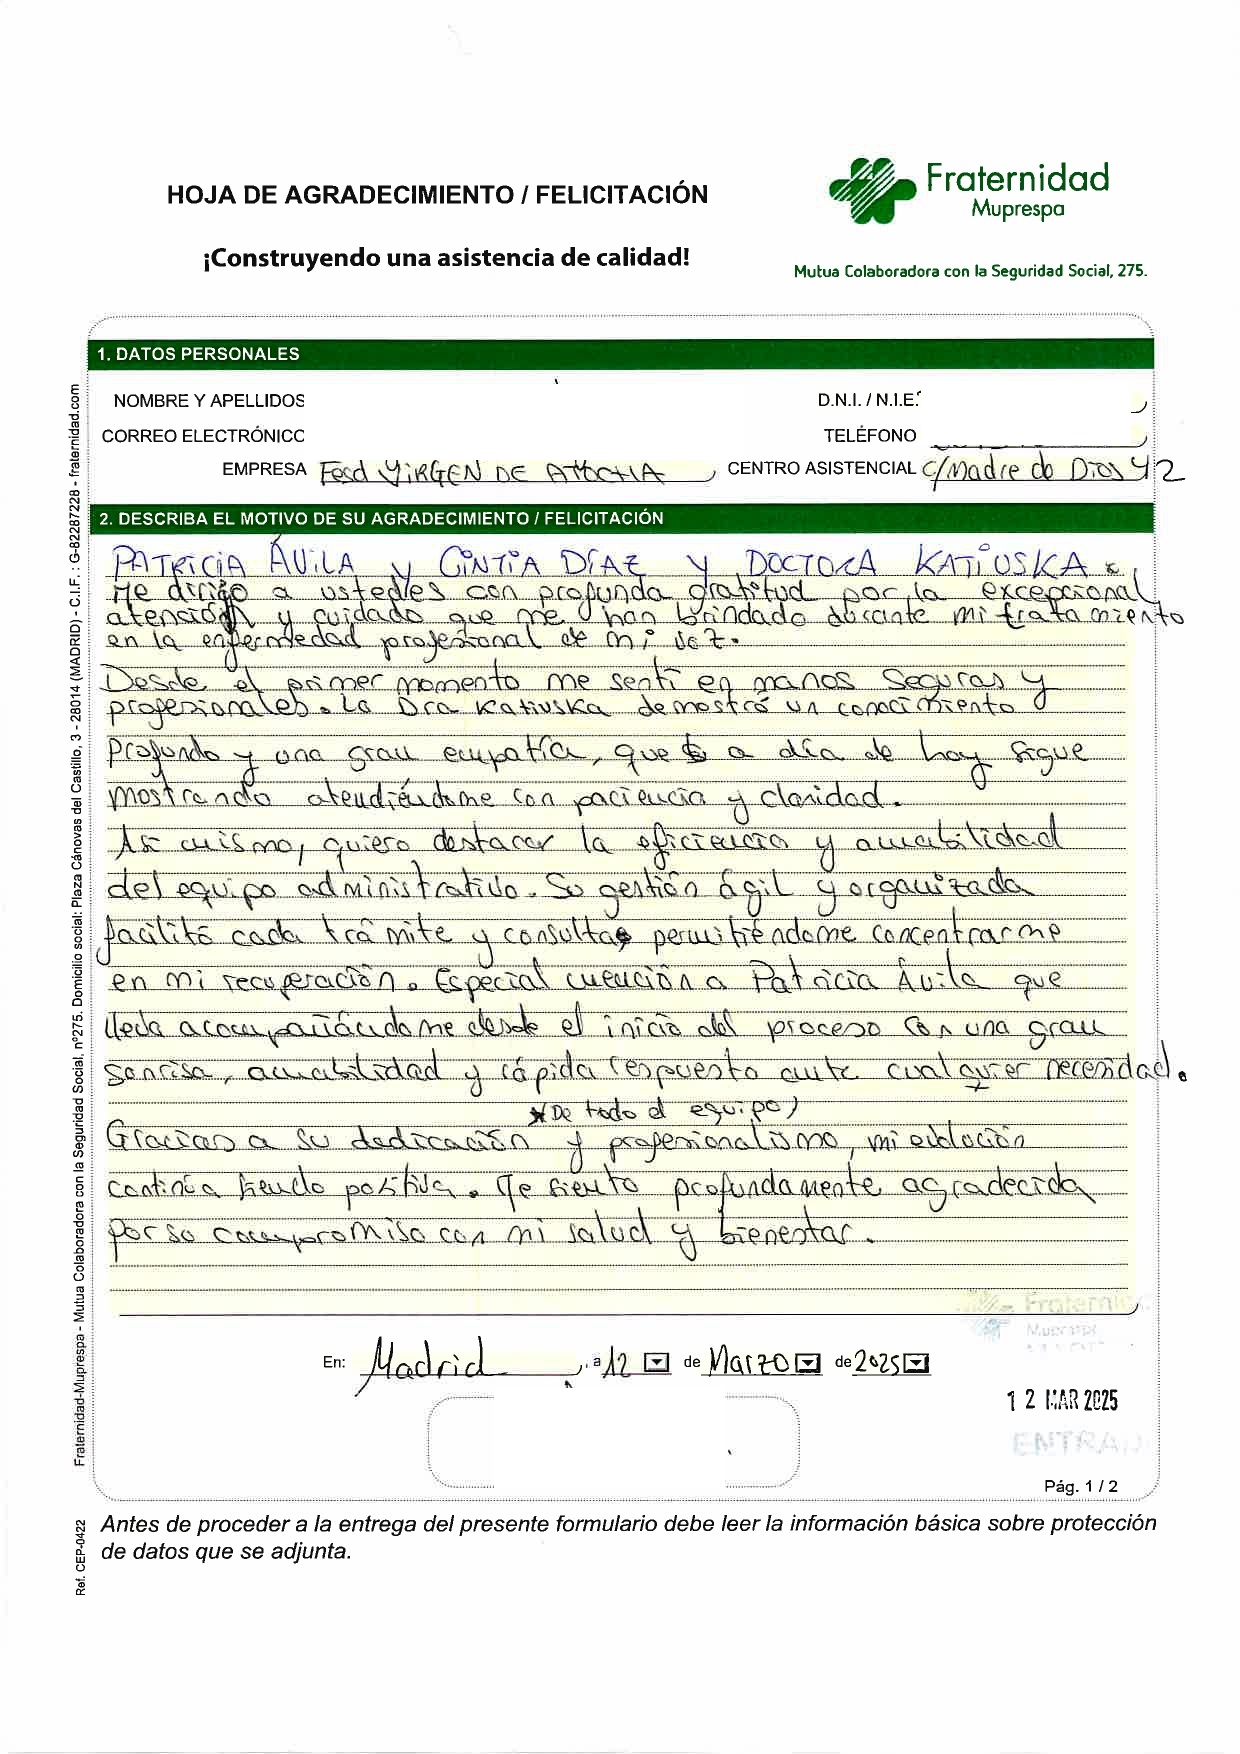 HOJA DE AGRADECIMIENTO / FELICITACIÓN
Fraternidad
Muprespa
¡Construyendo una asistencia de calidad!
Mutua Colaboradora con la Seguridad Social, 275.
1. DATOS PERSONALES
NOMBRE Y APELLIDOS
D.N.I. / N.I.E.
CORREO ELECTRÓNICO
TELÉFONO
EMPRESA Fesd VIRGEN DE ATOCHA CENTRO ASISTENCIAL C/Madre de Dios 42
2. DESCRIBA EL MOTIVO DE SU AGRADECIMIENTO / FELICITACIÓN
PATRICIA ÁVILA y CINTIA DÍAZ Y DOCTORA KATIUSKA *
Me dirijo a ustedes con profunda gratitud por la excepcional
atención y cuidado que me han brindado durante mi tratamiento
en la enfermedad profesional de mi voz.
Desde el primer momento me sentí en manos seguras y
profesionales. La Dra Katiuska demostró un conocimiento
profundo y una gran empatía, que a día de hoy sigue
mostrando atendiéndome con paciencia y claridad.
Así mismo, quiero destacar la eficiencia y amabilidad
del equipo administrativo. Su gestión ágil y organizada
facilitó cada trámite y consulta permitiéndome concentrarme
en mi recuperación. Especial mención a Patricia Ávila que
lleva acompañándome desde el inicio del proceso con una gran
sonrisa, amabilidad y rápida respuesta ante cualquier necesidad.
*De todo el equipo)
Gracias a su dedicación y profesionalismo, mi evolución
continúa siendo positiva. Me siento profundamente agradecida
por su compromiso con mi salud y bienestar.
Fraternidad
Muprespa
En: Madrid , a 12 de Marzo de 2025
12 MAR 2025
ENTRADA
Pág. 1 / 2
Antes de proceder a la entrega del presente formulario debe leer la información básica sobre protección
de datos que se adjunta.
Fraternidad-Muprespa - Mutua Colaboradora con la Seguridad Social, nº275. Domicilio social: Plaza Cánovas del Castillo, 3 - 28014 (MADRID) - C.I.F. : G-82287228 - fraternidad.com
Ref. CEP-0422